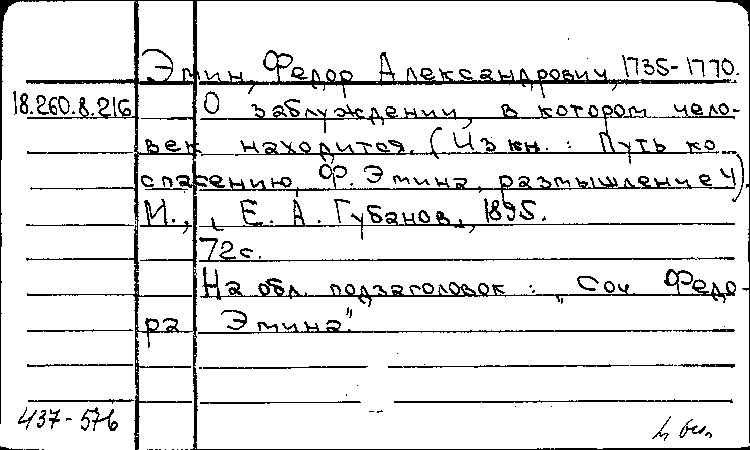 Эмин, Федор Александрович, 1735-1770.
18.260.8.216 О заблуждении, в котором чело-
век находится. (Из кн.: Путь ко
спасению, Ф. Эмина, размышление 4).
М., Е. А. Губанов, 1895.
72 с.
На обл. подзаголовок: „Соч. Федо-
ра Эмина".
437-576